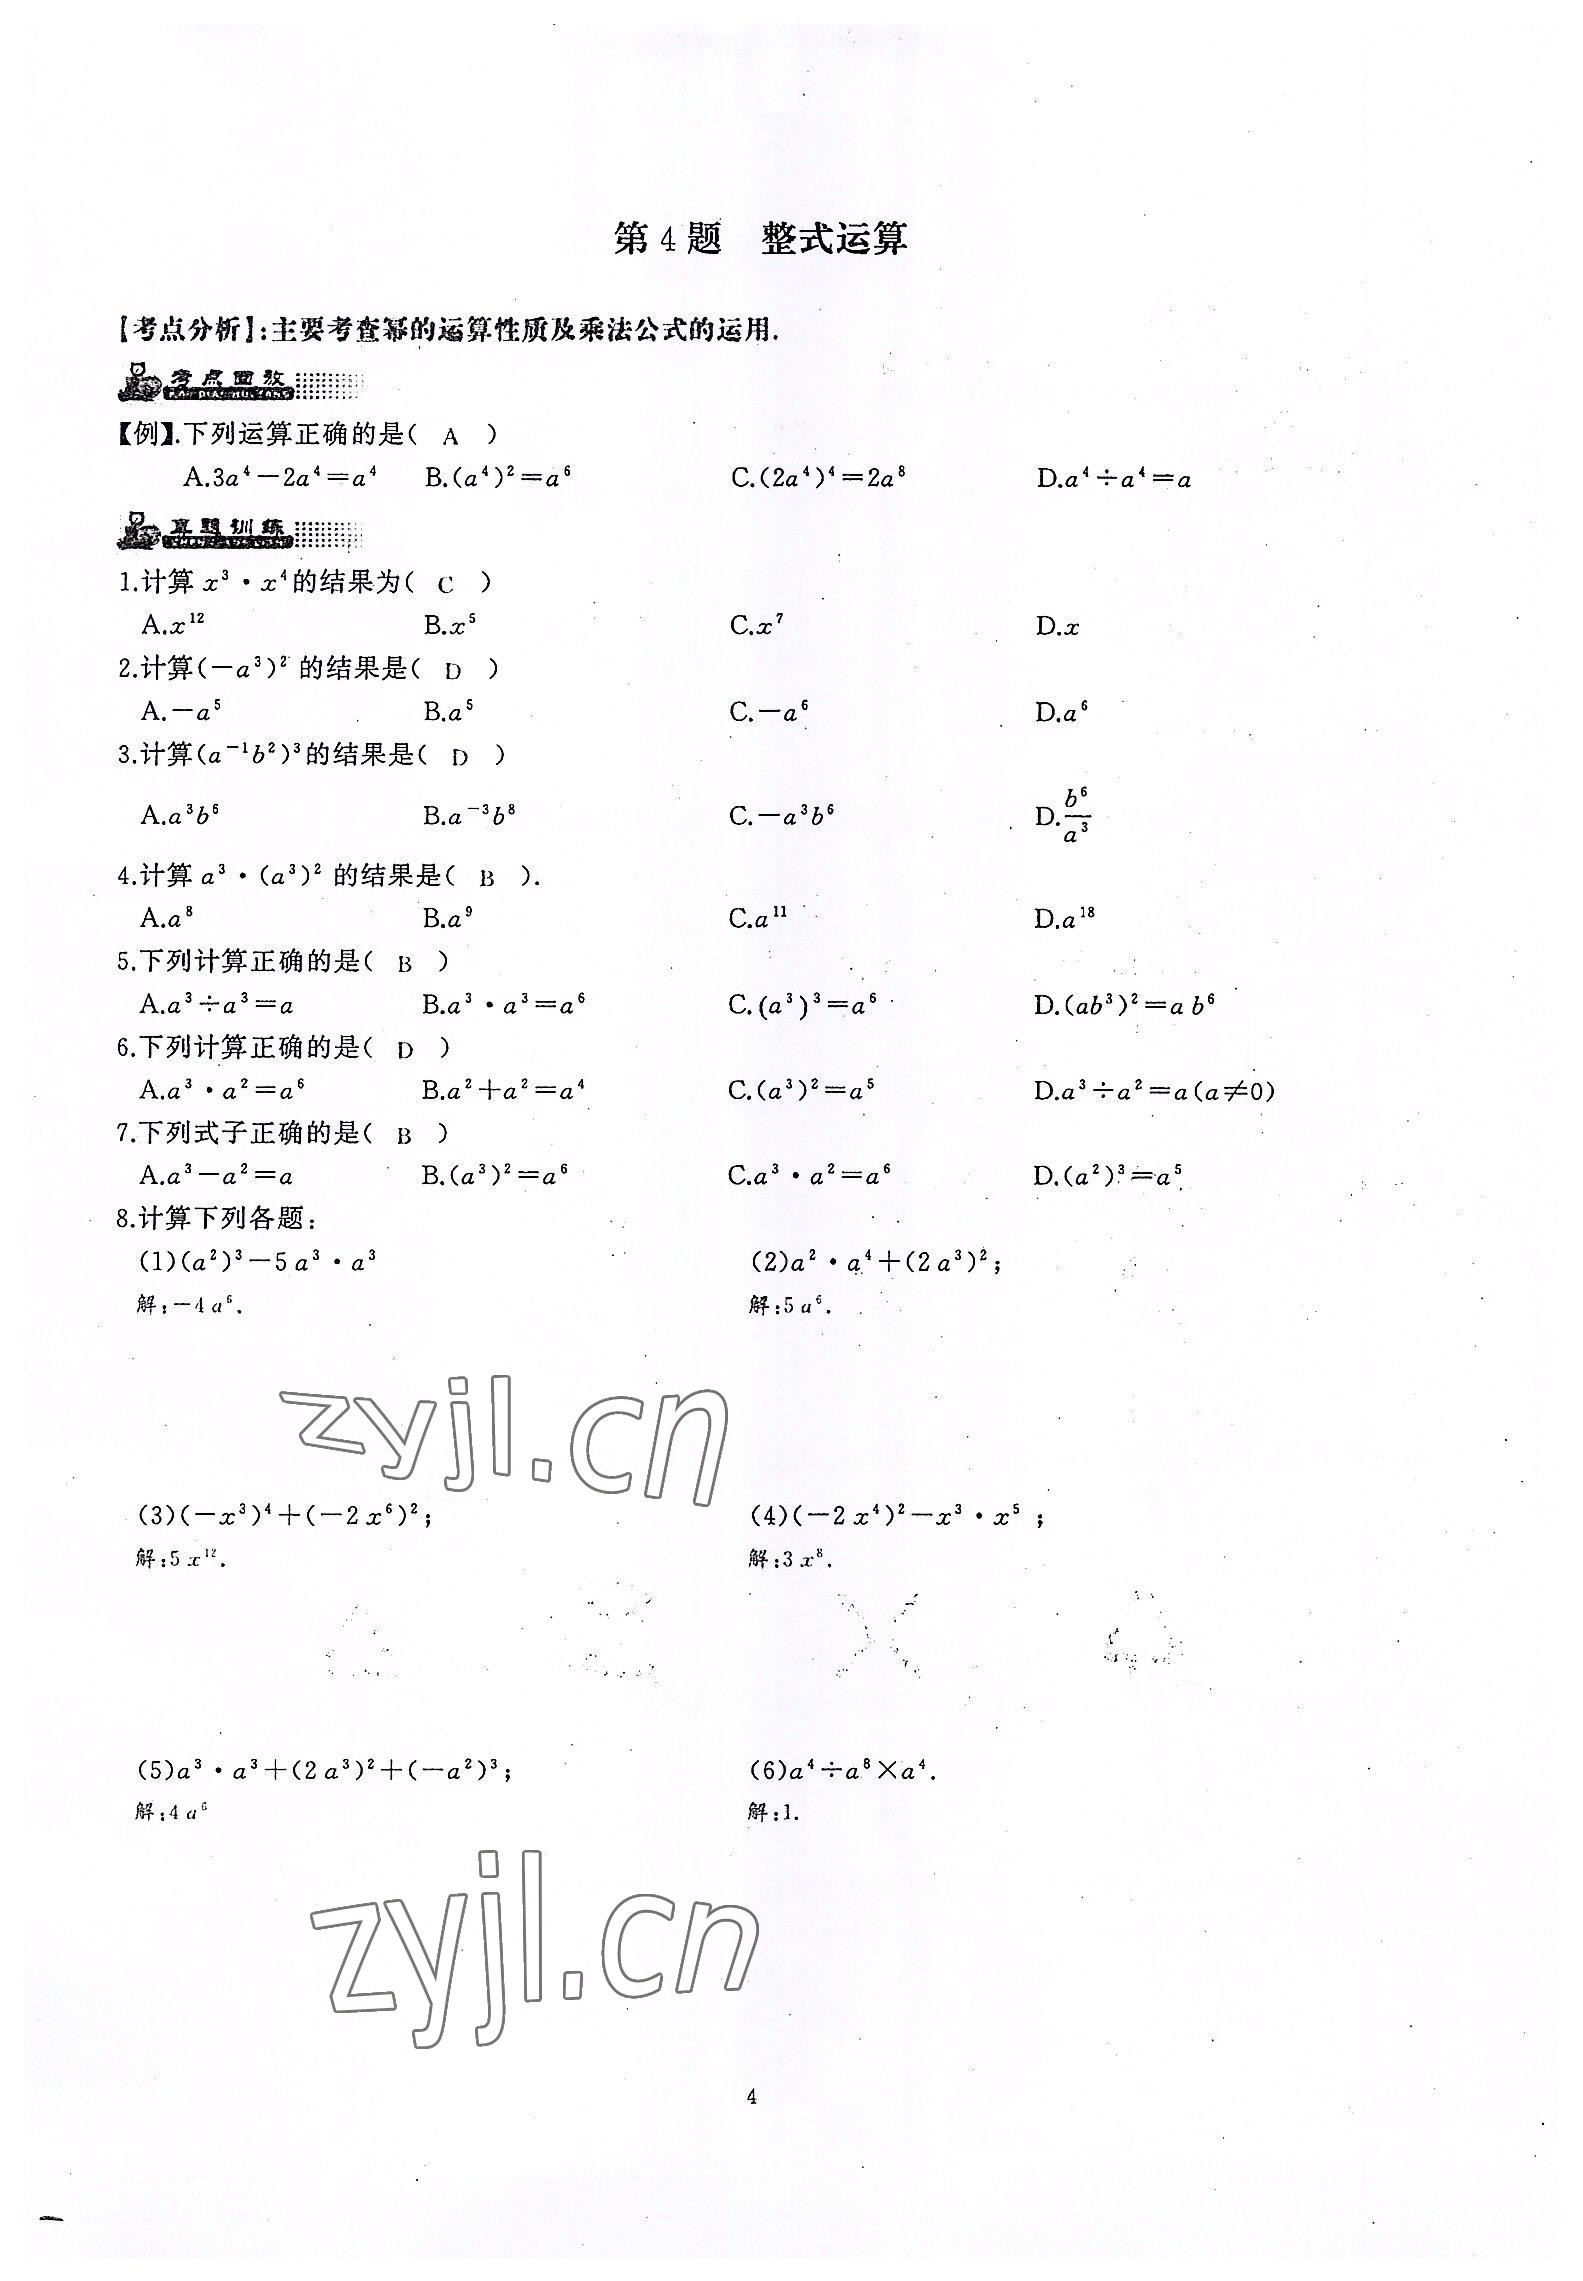 第 4 题　整式运算
【考点分析】:主要考查幂的运算性质及乘法公式的运用.
考点回放
【例】.下列运算正确的是( A )
A.3a⁴－2a⁴＝a⁴ B.(a⁴)²＝a⁶ C.(2a⁴)⁴＝2a⁸ D.a⁴÷a⁴＝a
真题训练
1.计算 x³·x⁴的结果为( C )
A.x¹² B.x⁵ C.x⁷ D.x
2.计算(－a³)² 的结果是( D )
A.－a⁵ B.a⁵ C.－a⁶ D.a⁶
3.计算(a⁻¹b²)³的结果是( D )
A.a³b⁶ B.a⁻³b⁸ C.－a³b⁶ D.b⁶/a³
4.计算 a³·(a³)² 的结果是( B ).
A.a⁸ B.a⁹ C.a¹¹ D.a¹⁸
5.下列计算正确的是( B )
A.a³÷a³＝a B.a³·a³＝a⁶ C.(a³)³＝a⁶ D.(ab³)²＝a b⁶
6.下列计算正确的是( D )
A.a³·a²＝a⁶ B.a²＋a²＝a⁴ C.(a³)²＝a⁵ D.a³÷a²＝a(a≠0)
7.下列式子正确的是( B )
A.a³－a²＝a B.(a³)²＝a⁶ C.a³·a²＝a⁶ D.(a²)³＝a⁵
8.计算下列各题:
(1)(a²)³－5 a³·a³ (2)a²·a⁴＋(2 a³)²;
解:－4 a⁶. 解:5 a⁶.
zyjl.cn
(3)(－x³)⁴＋(－2 x⁶)²; (4)(－2 x⁴)²－x³·x⁵ ;
解:5 x¹². 解:3 x⁸.
(5)a³·a³＋(2 a³)²＋(－a²)³; (6)a⁴÷a⁸×a⁴.
解:4 a⁶ 解:1.
zyjl.cn
4